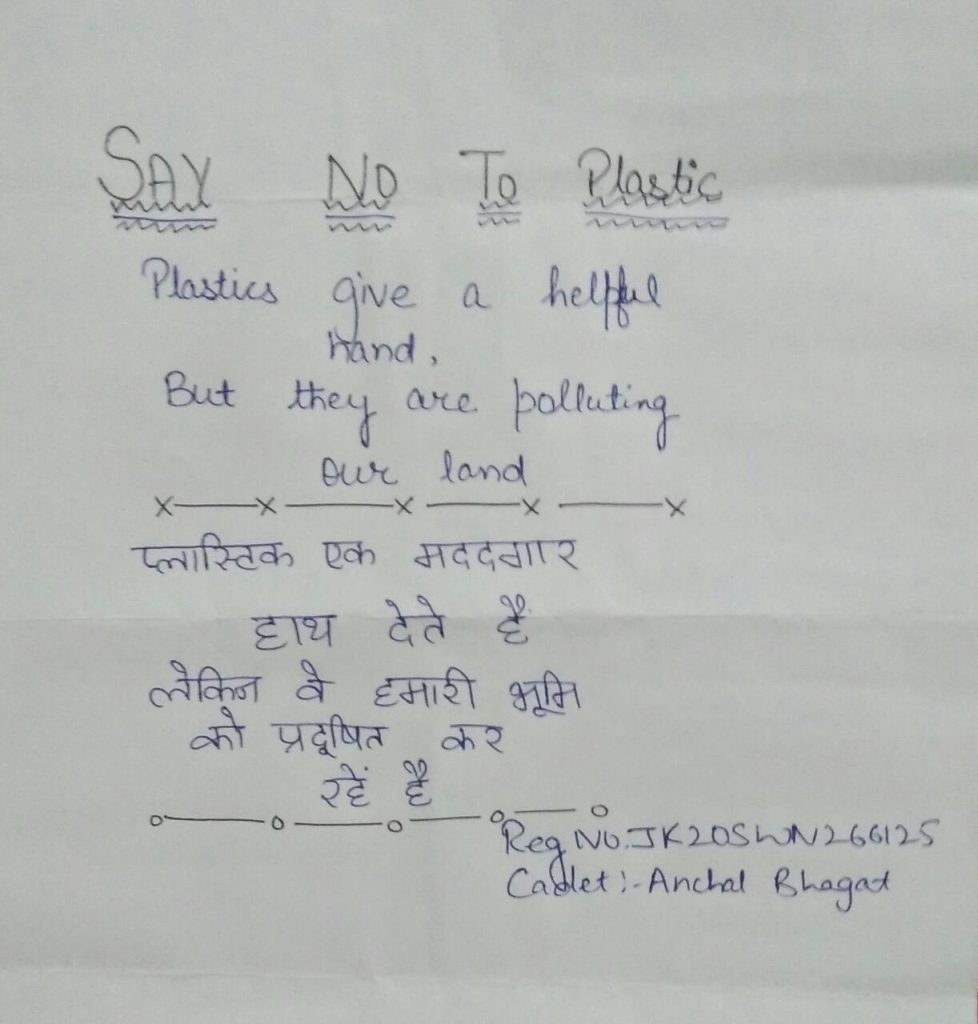 SAY No To Plastic
Plastics give a helpful
hand,
But they are polluting
our land
प्लास्टिक एक मददगार
हाथ देते है
लेकिन वे हमारी भूमि
को प्रदूषित कर
रहें है
Reg No. JK20SWN266125
Cadet :- Anchal Bhagat